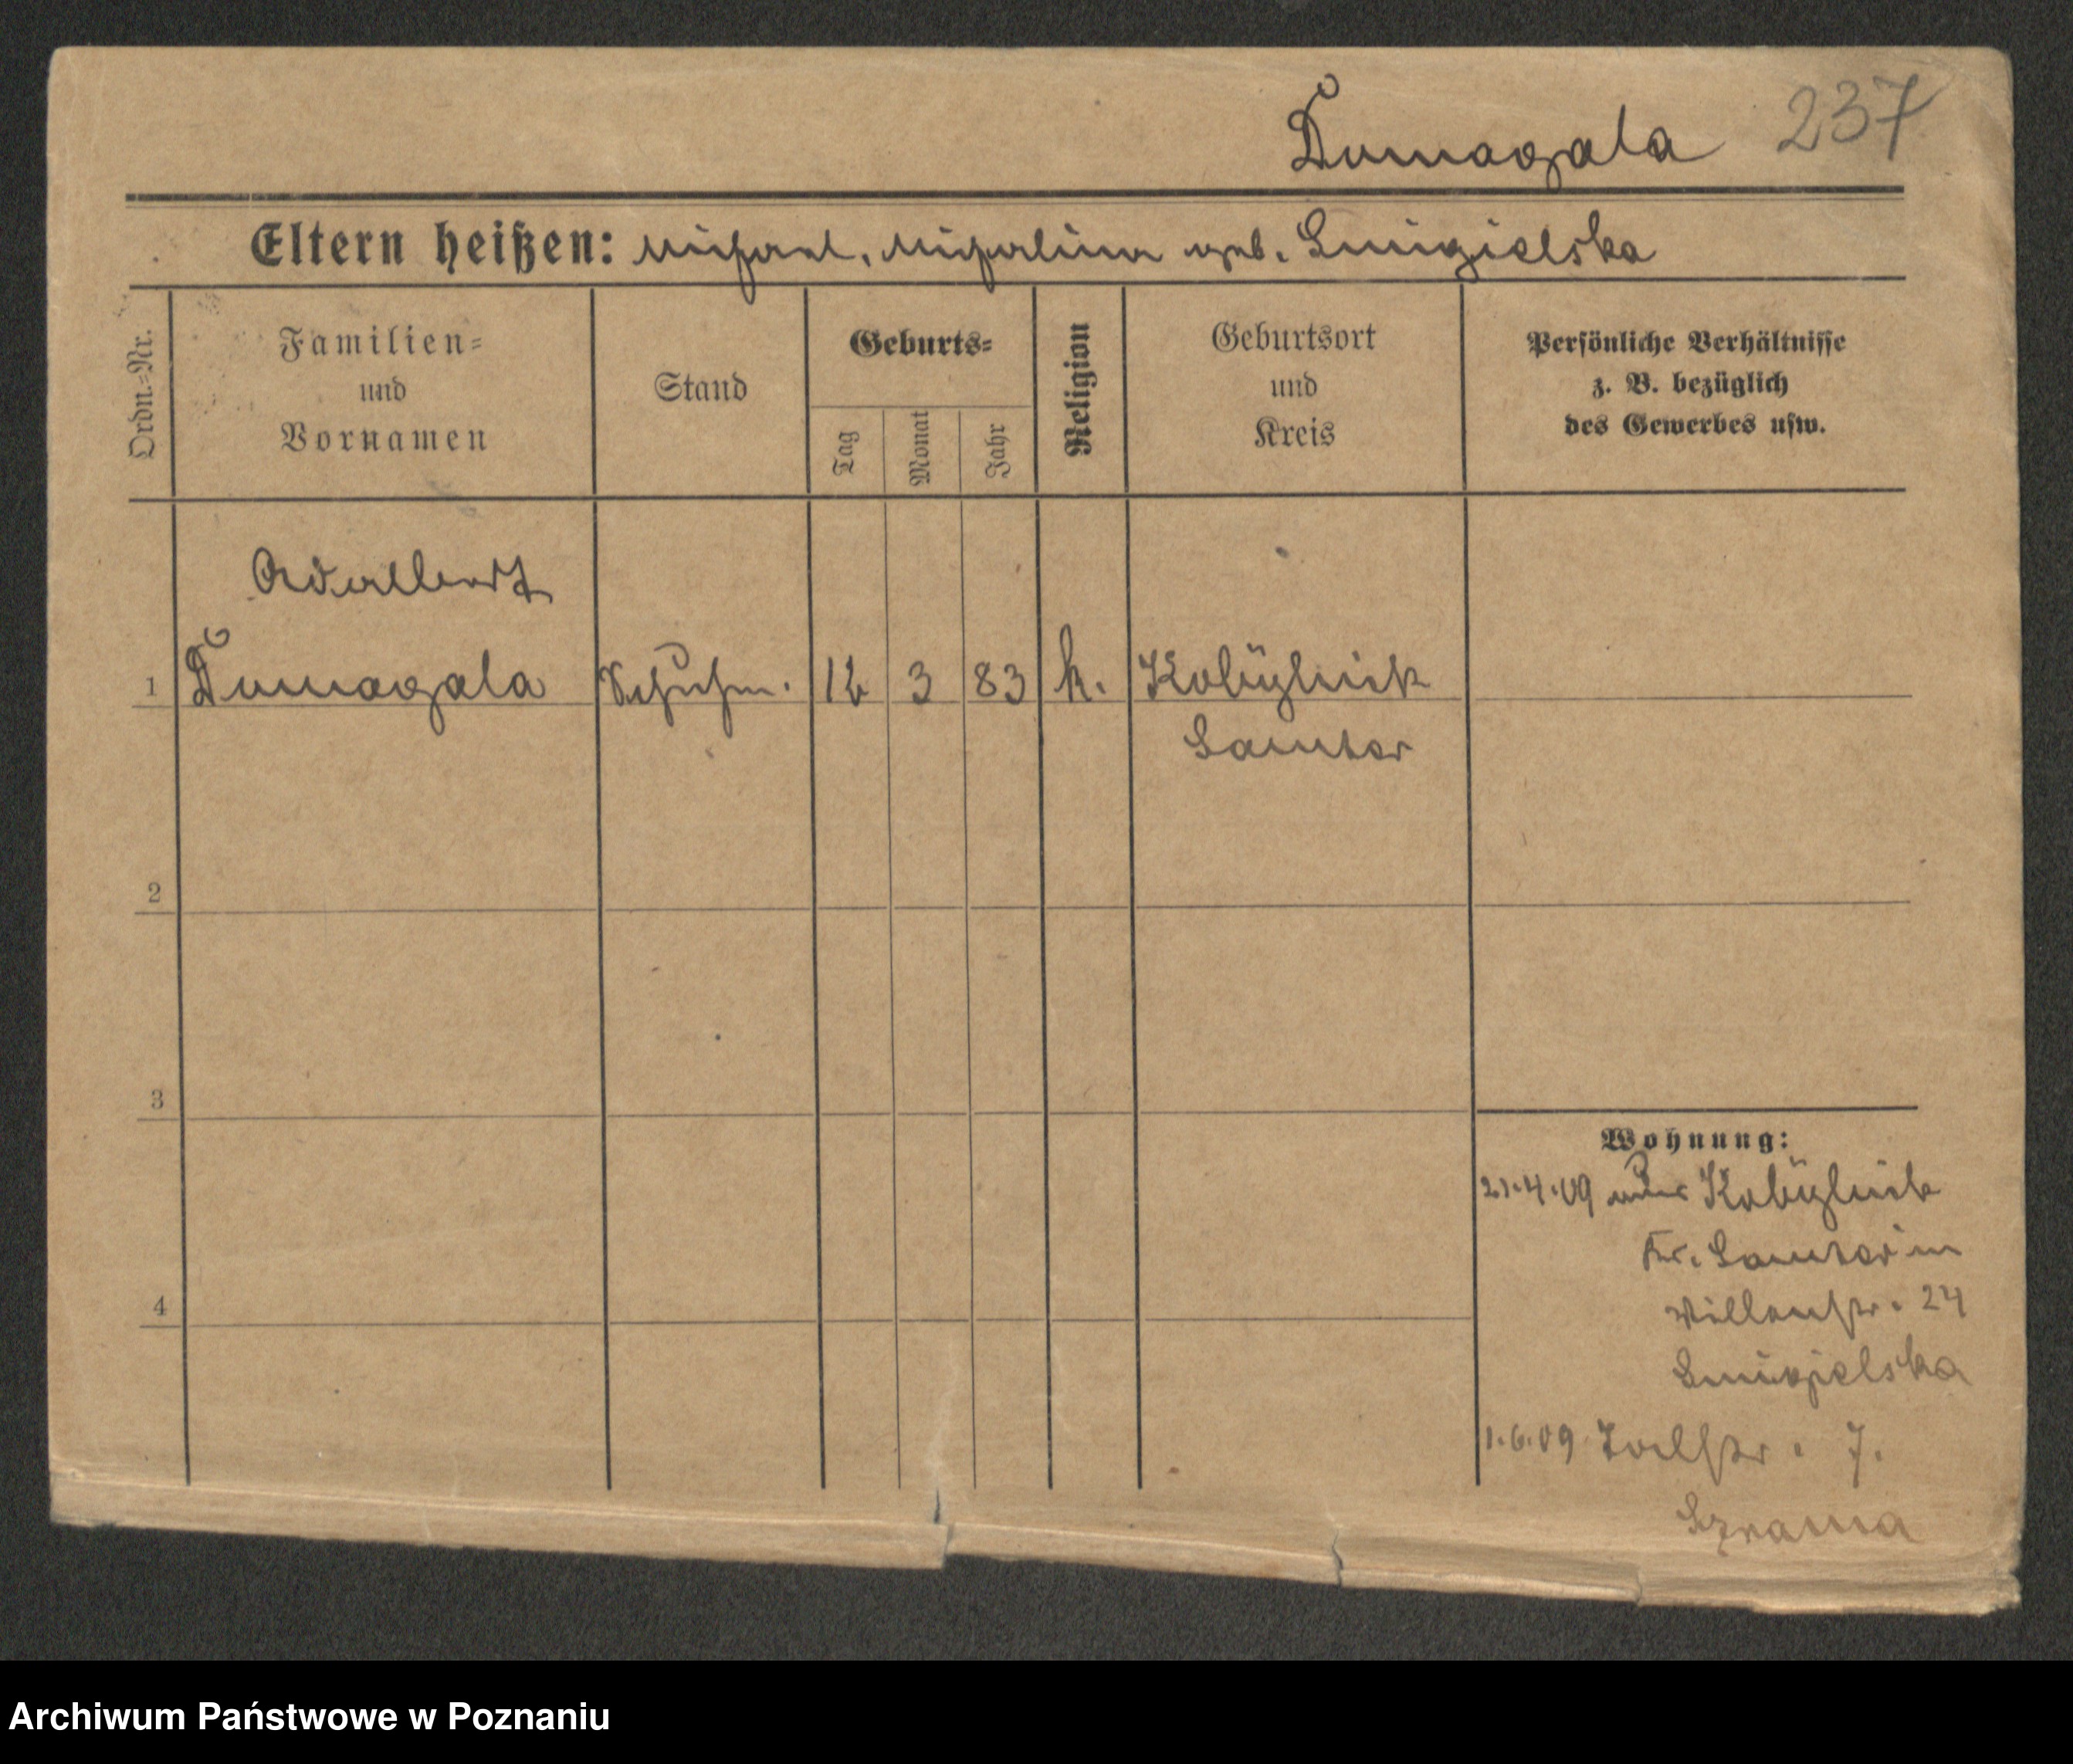 Dumagala 237
Eltern heißen: Michael, Michalina geb. Smigielska
Ordn.-Nr.
Familien-
und
Vornamen
Stand
Geburts-
Tag
Monat
Jahr
Religion
Geburtsort
und
Kreis
Persönliche Verhältnisse
z. B. bezüglich
des Gewerbes usw.
Adalbert
1 Dumagala Schuhm. 12 3 83 k. Kobylnik
Samter
2
3
4
Wohnung:
21.4.09 aus Kobylnik
Kr. Samter in
Villenstr. 24
Smigielska
1.6.09 7.
Szrama
Archiwum Państwowe w Poznaniu